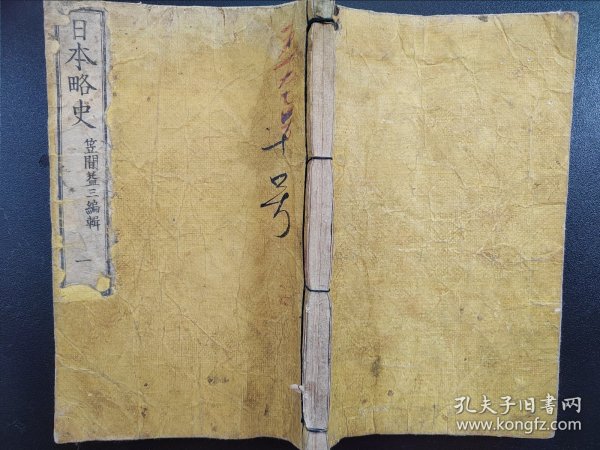 日本略史
笠間益三編輯
一
十号
孔夫子旧书网
www.kongfz.com